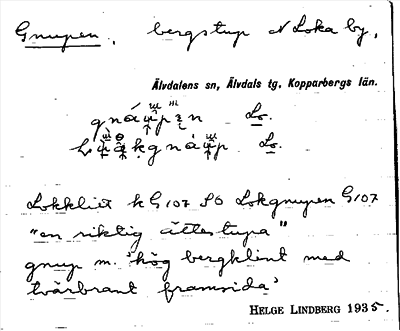 Gnupen, bergstup N Loka by,
Älvdalens sn, Älvdals tg, Kopparbergs län.
Lo.
Lo.
Lokklien k G107 SO Lokgnupen G107
"en riktig ättestupa"
gnup m. 'hög bergklint med
tvärbrant framsida'
HELGE LINDBERG 1935.